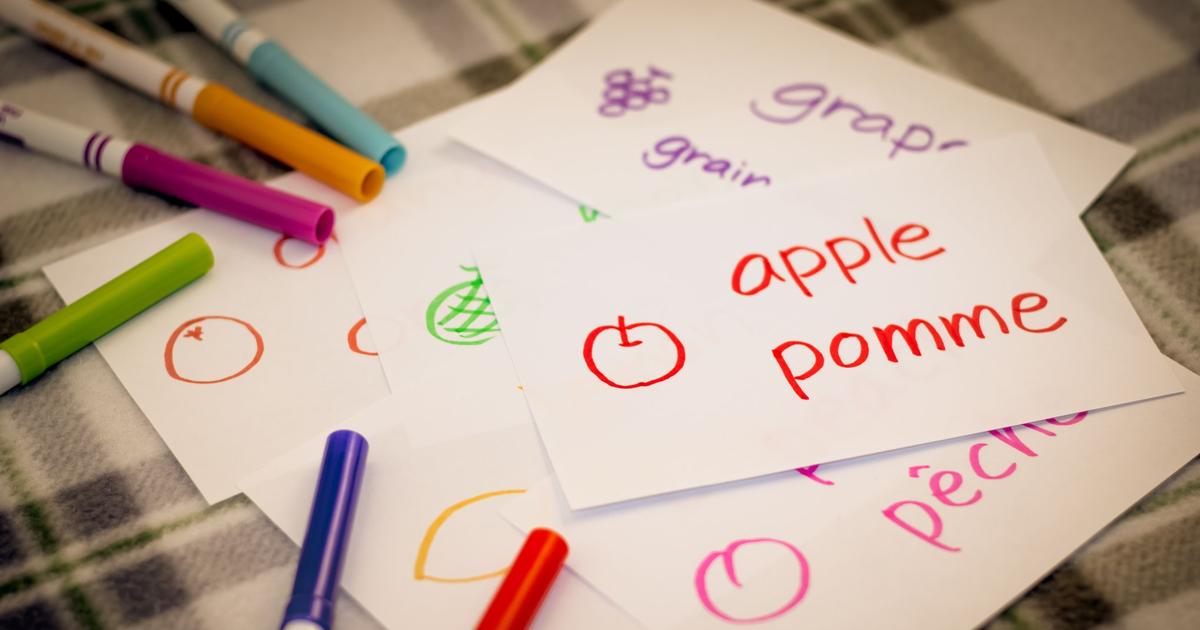 grap
grain
apple
pomme
pêche